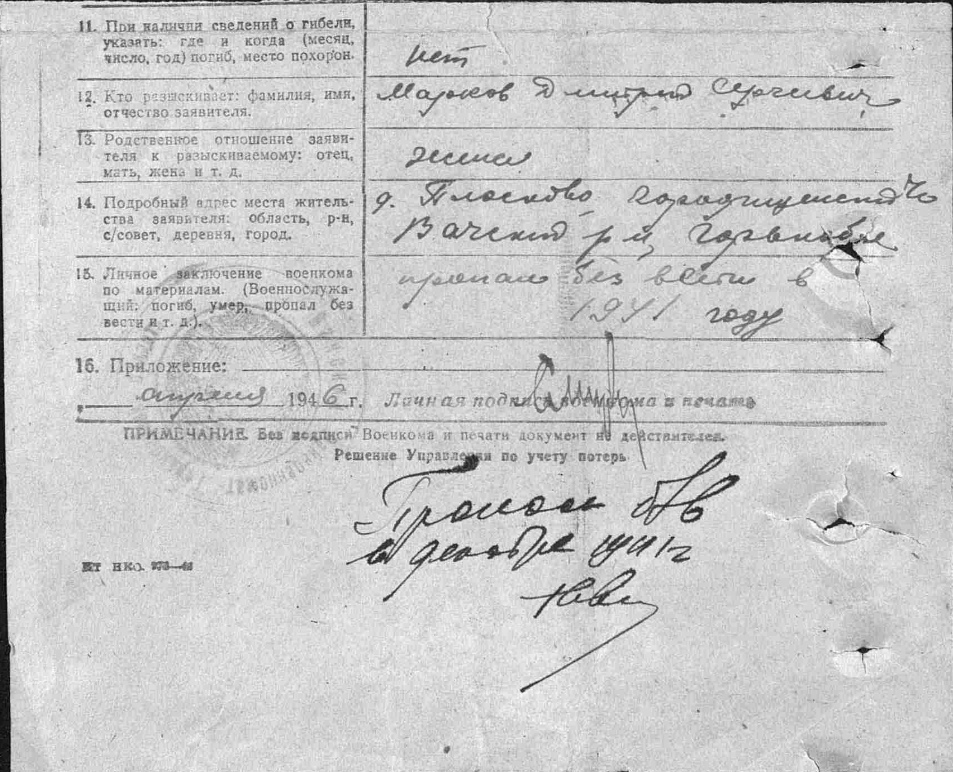 11. При наличии сведений о гибели,
указать: где и когда (месяц,
число, год) погиб, место похорон.
нет
12. Кто разыскивает: фамилия, имя,
отчество заявителя.
Марков Дмитрий Сергеевич
13. Родственное отношение заяви-
теля к разыскиваемому: отец,
мать, жена и т. д.
14. Подробный адрес места житель-
ства заявителя: область, р-н,
с/совет, деревня, город.
д. Плосково Городищенского
Вачский р-н, Горьк обл
15. Личное заключение военкома
по материалам. (Военнослужа-
щий: погиб, умер, пропал без
вести и т. д.).
пропал без вести в
1941 году
16. Приложение:
апреля 1946 г. Личная подпись военкома и печать
ПРИМЕЧАНИЕ. Без подписи Военкома и печати документ не действителен.
Решение Управления по учету потерь
Пропал б/в
в декабре 1941 г
НКО.